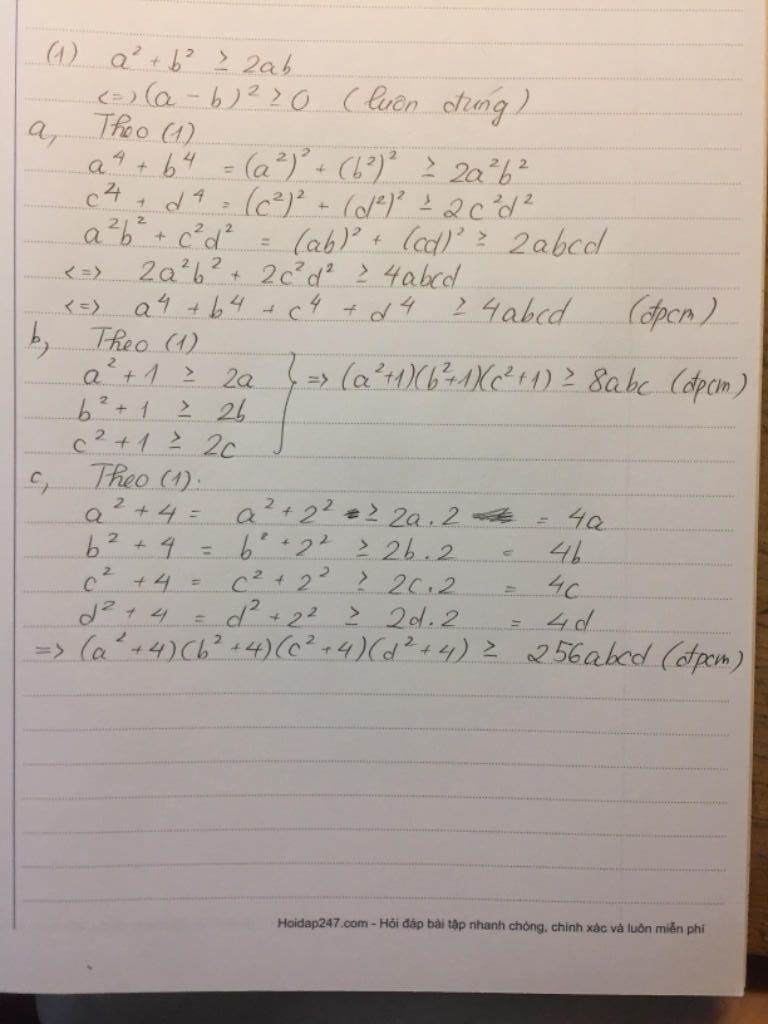 (1) a² + b² ≥ 2ab
<=> (a - b)² ≥ 0 (luôn đúng)
a, Theo (1)
a⁴ + b⁴ = (a²)² + (b²)² ≥ 2a²b²
c⁴ + d⁴ = (c²)² + (d²)² ≥ 2c²d²
a²b² + c²d² = (ab)² + (cd)² ≥ 2abcd
<=> 2a²b² + 2c²d² ≥ 4abcd
<=> a⁴ + b⁴ + c⁴ + d⁴ ≥ 4abcd (đpcm)
b, Theo (1)
a² + 1 ≥ 2a } => (a²+1)(b²+1)(c²+1) ≥ 8abc (đpcm)
b² + 1 ≥ 2b
c² + 1 ≥ 2c
c, Theo (1).
a² + 4 = a² + 2² ≥ 2a . 2 = 4a
b² + 4 = b² + 2² ≥ 2b . 2 = 4b
c² + 4 = c² + 2² ≥ 2c . 2 = 4c
d² + 4 = d² + 2² ≥ 2d . 2 = 4d
=> (a² + 4)(b² + 4)(c² + 4)(d² + 4) ≥ 256abcd (đpcm)
Hoidap247.com - Hỏi đáp bài tập nhanh chóng, chính xác và luôn miễn phí